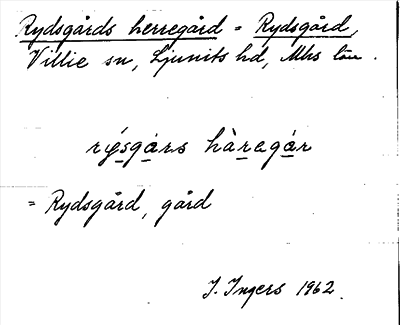 Rydsgårds herregård = Rydsgård,
Villie sn, Ljunits hd, Mhs län.
rýsgạrs hàregạ́r
= Rydsgård, gård
I. Ingers 1962.